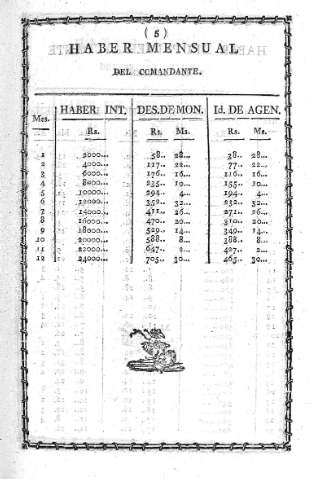 ( 5 )
HABER MENSUAL
DEL COMANDANTE.
Mes. HABER INT. DES.DE MON. Id. DE AGEN.
Rs. Rs. Ms. Rs. Ms.
1 2000... 58.. 28... 38.. 28...
2 4000... 117.. 22... 77.. 22...
3 6000... 176.. 16... 116.. 16...
4 8000... 235.. 10... 155.. 10...
5 10000... 294.. 4... 194.. 4...
6 12000... 352.. 32... 232.. 32...
7 14000... 411.. 26... 271.. 26...
8 16000... 470.. 20... 310.. 20...
9 18000... 529.. 14... 349.. 14...
10 20000... 588.. 8... 388.. 8...
11 22000... 647.. 2... 427.. 2...
12 24000... 705.. 30... 465.. 30...